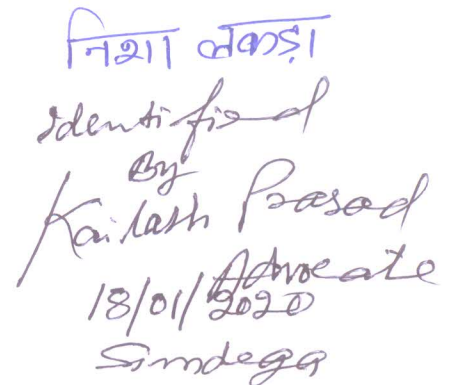 निशा लकड़ा
Identified
By
Kailash Prasad
Advocate
18/01/2020
Simdega